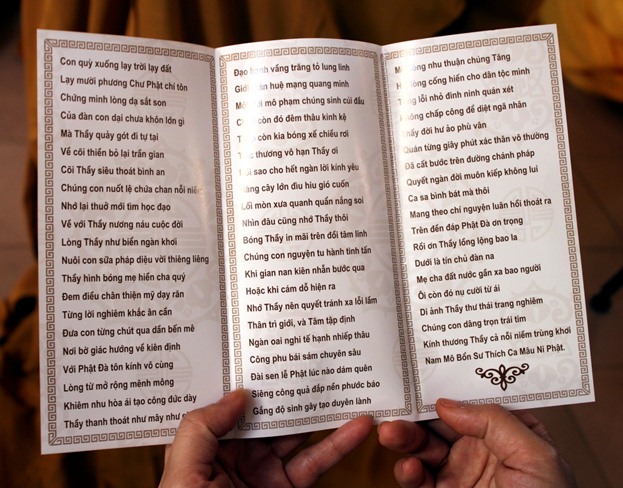 Con quỳ xuống lạy trời lạy đất
Lạy mười phương Chư Phật chí tôn
Chứng minh lòng dạ sắt son
Của đàn con dại chưa khôn lớn gì
Mà Thầy quảy gót đi tự tại
Về cõi thiền bỏ lại trần gian
Cõi Thầy siêu thoát bình an
Chúng con nuốt lệ chứa chan nỗi niềm
Nhớ lại thuở mới tìm học đạo
Về với Thầy nương náu cuộc đời
Lòng Thầy như biển ngàn khơi
Nuôi con sữa pháp diệu vời thiêng liêng
Thầy hình bóng mẹ hiền cha quý
Đem điều chân thiện mỹ dạy răn
Từng lời nghiêm khắc ân cần
Đưa con từng chút qua dần bến mê
Nơi bờ giác hướng về kiên định
Với Phật Đà tôn kính vô cùng
Lòng từ mở rộng mênh mông
Khiêm nhu hòa ái tạo công đức dày
Thầy thanh thoát như mây như
Đạo hạnh vầng trăng tỏ lung linh
Giới văn huệ mạng quang minh
Một mô phạm chúng sinh cúi đầu
còn đó đêm thâu kinh kệ
còn kia bóng xế chiều rơi
thương vô hạn Thầy ơi
sao cho hết ngàn lời kính yêu
cây lớn đìu hiu gió cuốn
Lối mòn xưa quanh quẩn nắng soi
Nhìn đâu cũng nhớ Thầy thôi
Bóng Thầy in mãi trên đồi tâm linh
Chúng con nguyện tu hành tinh tấn
Khi gian nan kiên nhẫn bước qua
Hoặc khi cám dỗ hiện ra
Nhớ Thầy nên quyết tránh xa lỗi lầm
Thân trì giới, và Tâm tập định
Ngàn oai nghi tế hạnh nhiếp thâu
Công phu bái sám chuyên sâu
Đài sen lễ Phật lúc nào dám quên
Siêng công quả đắp nền phước báo
Gắng độ sinh gây tạo duyên lành
nhu thuận chúng Tăng
lòng cống hiến cho dân tộc mình
lỗi nhỏ đinh ninh quán xét
Không chấp công để diệt ngã nhân
Thấy đời hư ảo phù vân
Quán từng giây phút xác thân vô thường
Đã cất bước trên đường chánh pháp
Quyết ngàn đời muôn kiếp không lui
Ca sa bình bát mà thôi
Mang theo chí nguyện luân hồi thoát ra
Trên đền đáp Phật Đà ơn trọng
Rồi ơn Thầy lồng lộng bao la
Dưới là tín chủ đàn na
Mẹ cha đất nước gần xa bao người
Ôi còn đó nụ cười từ ái
Di ảnh Thầy thư thái trang nghiêm
Chúng con dâng trọn trái tim
Kính thương Thầy cả nỗi niềm trùng khơi
Nam Mô Bổn Sư Thích Ca Mâu Ni Phật.